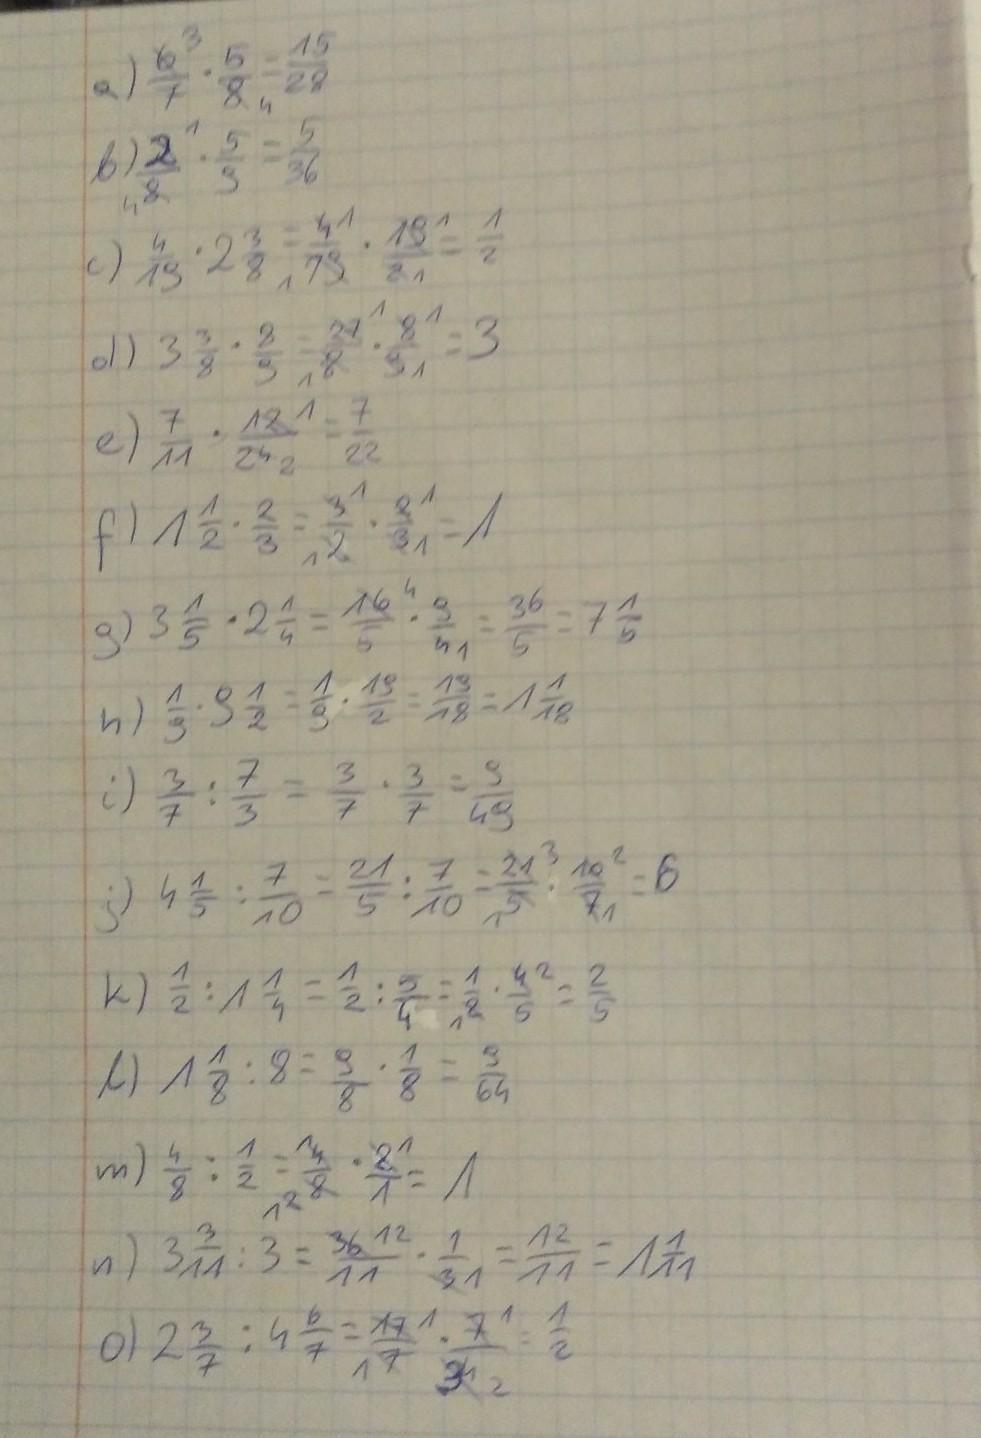 a) 6/7 3 · 5/8 4 = 15/28
b) 2/8 1 4 · 5/9 = 5/36
c) 4/19 · 2 3/8 = 4/19 1 1 · 19/8 1 1 = 1/2
d) 3 3/8 · 8/9 = 27/8 1 1 · 8/9 1 1 = 3
e) 7/11 · 12/24 1 2 = 7/22
f) 1 1/2 · 2/3 = 3/2 1 1 · 2/3 1 1 = 1
g) 3 1/5 · 2 1/4 = 16/5 4 · 9/4 1 = 36/5 = 7 1/5
h) 1/9 · 9 1/2 = 1/9 · 19/2 = 19/18 = 1 1/18
i) 3/7 : 7/3 = 3/7 · 3/7 = 9/49
j) 4 1/5 : 7/10 = 21/5 : 7/10 = 21/5 3 1 · 10/7 2 1 = 6
k) 1/2 : 1 1/4 = 1/2 : 5/4 = 1/2 1 · 4/5 2 = 2/5
l) 1 1/8 : 8 = 9/8 · 1/8 = 9/64
m) 4/8 : 1/2 = 4/8 1 2 1 · 2/1 1 = 1
n) 3 3/11 : 3 = 36/11 12 · 1/3 1 = 12/11 = 1 1/11
o) 2 3/7 : 4 6/7 = 17/7 1 1 · 7/34 1 2 = 1/2